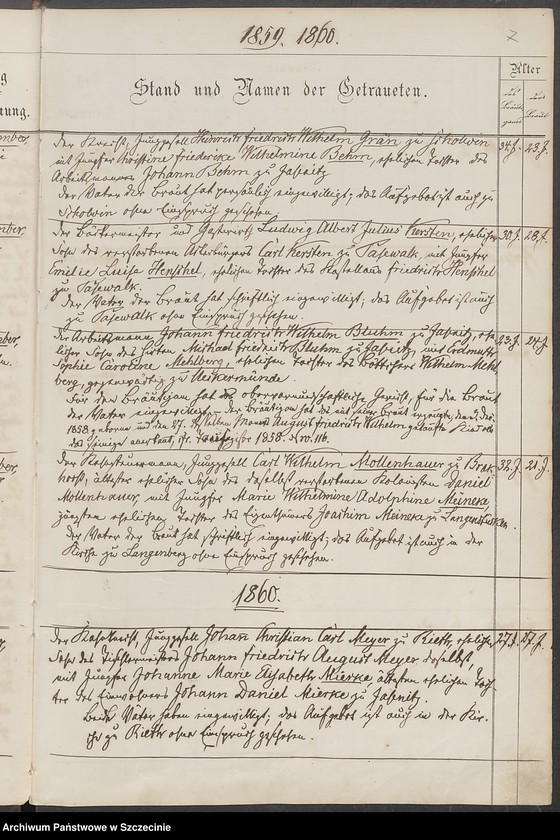 1859. 1860.
7
Alter
Stand und Namen der Getraueten.
des Bräutigams
der Braut
g
ung.
Der Knecht, Junggesell Heinrich Friedrich Wilhelm Grän zu Skolwin 34 J. 23 J.
mit Jungfer Christine Friederike Wilhelmine Behm, ehelichen Tochter des
Arbeitsmannes Johann Behm zu Jasenitz
Der Vater der Braut hat persönlich eingewilligt; das Aufgebot ist auch zu
Skolwin ohne Einspruch geschehen.
Der Böttchermeister und Gastwirth Ludwig Albert Julius Kersten, ehelicher 30 J. 28 J.
Sohn des verstorbenen Ackerbürgers Carl Kersten zu Pasewalk, mit Jungfer
Emilie Luise Henschel, ehelichen Tochter des Kastellans Friedrich Henschel
zu Pasewalk.
Der Vater der Braut hat schriftlich eingewilligt; das Aufgebot ist auch
zu Pasewalk ohne Einspruch geschehen.
Der Arbeitsmann Johann Friedrich Wilhelm Bluhm zu Jasenitz, ehe- 23 J. 24 J.
licher Sohn des Hirten Michael Friedrich Bluhm zu Jasenitz, und Erdmuth
Sophie Caroline Mehlberg, ehelichen Tochter des Böttchers Wilhelm Mehl-
berg, gegenwärtig zu Ueckermünde.
Für den Bräutigam hat das obervormundschaftliche Gericht, für die Braut
der Vater eingewilligt. Der Bräutigam hat das mit seiner Braut erzeugte, den
1858 geborene und den 27. desselben Monats August Friedrich Wilhelm getaufte Kind
als das seinige anerkannt, 1858. No. 116.
Der Junggesell Carl Wilhelm Mollenhauer zu 38 J. 21 J.
horst, ältester ehelicher Sohn des daselbst verstorbenen Kolonisten Daniel
Mollenhauer, mit Jungfer Marie Wilhelmine Adolphine Meineka,
jüngsten ehelichen Tochter des Eigenthümers Joachim Meineka zu
Der Vater der Braut hat schriftlich eingewilligt; das Aufgebot ist auch in der
Kirche zu Langenberg ohne Einspruch geschehen.
1860.
Der Junggesell Johan Christian Carl Meyer zu Rieth, ehelicher 27 J. 27 J.
Sohn des Tischlermeisters Johann Friedrich August Meyer daselbst,
mit Jungfer Johanne Marie Elisabeth Mierke, ältesten ehelichen Toch-
ter des Einwohners Johann Daniel Mierke zu Jasenitz.
Beide Väter haben eingewilligt; das Aufgebot ist auch in der Kir-
che zu Rieth ohne Einspruch geschehen.
Archiwum Państwowe w Szczecinie